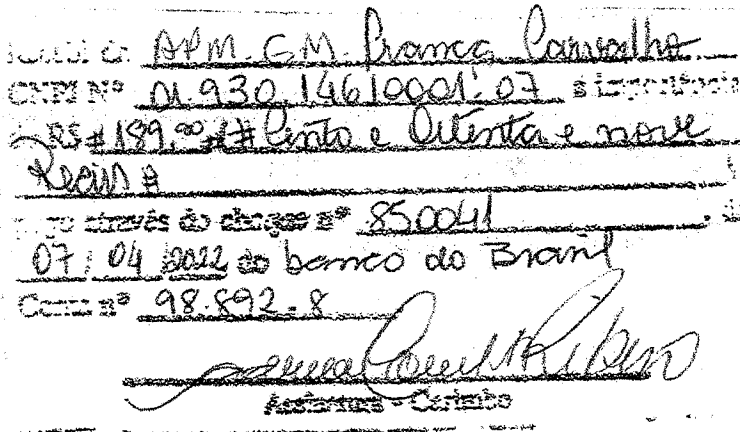 Recebi da APM. C.M. Franca Carvalho
CNPJ Nº 01.930.146/0001-07 a importância
R$ #189,00## Cento e Oitenta e nove
Reais #
pago através do cheque nº 850041
07/04/2022 do banco do Brasil
Conta nº 98.892-8
Assinatura - Carimbo